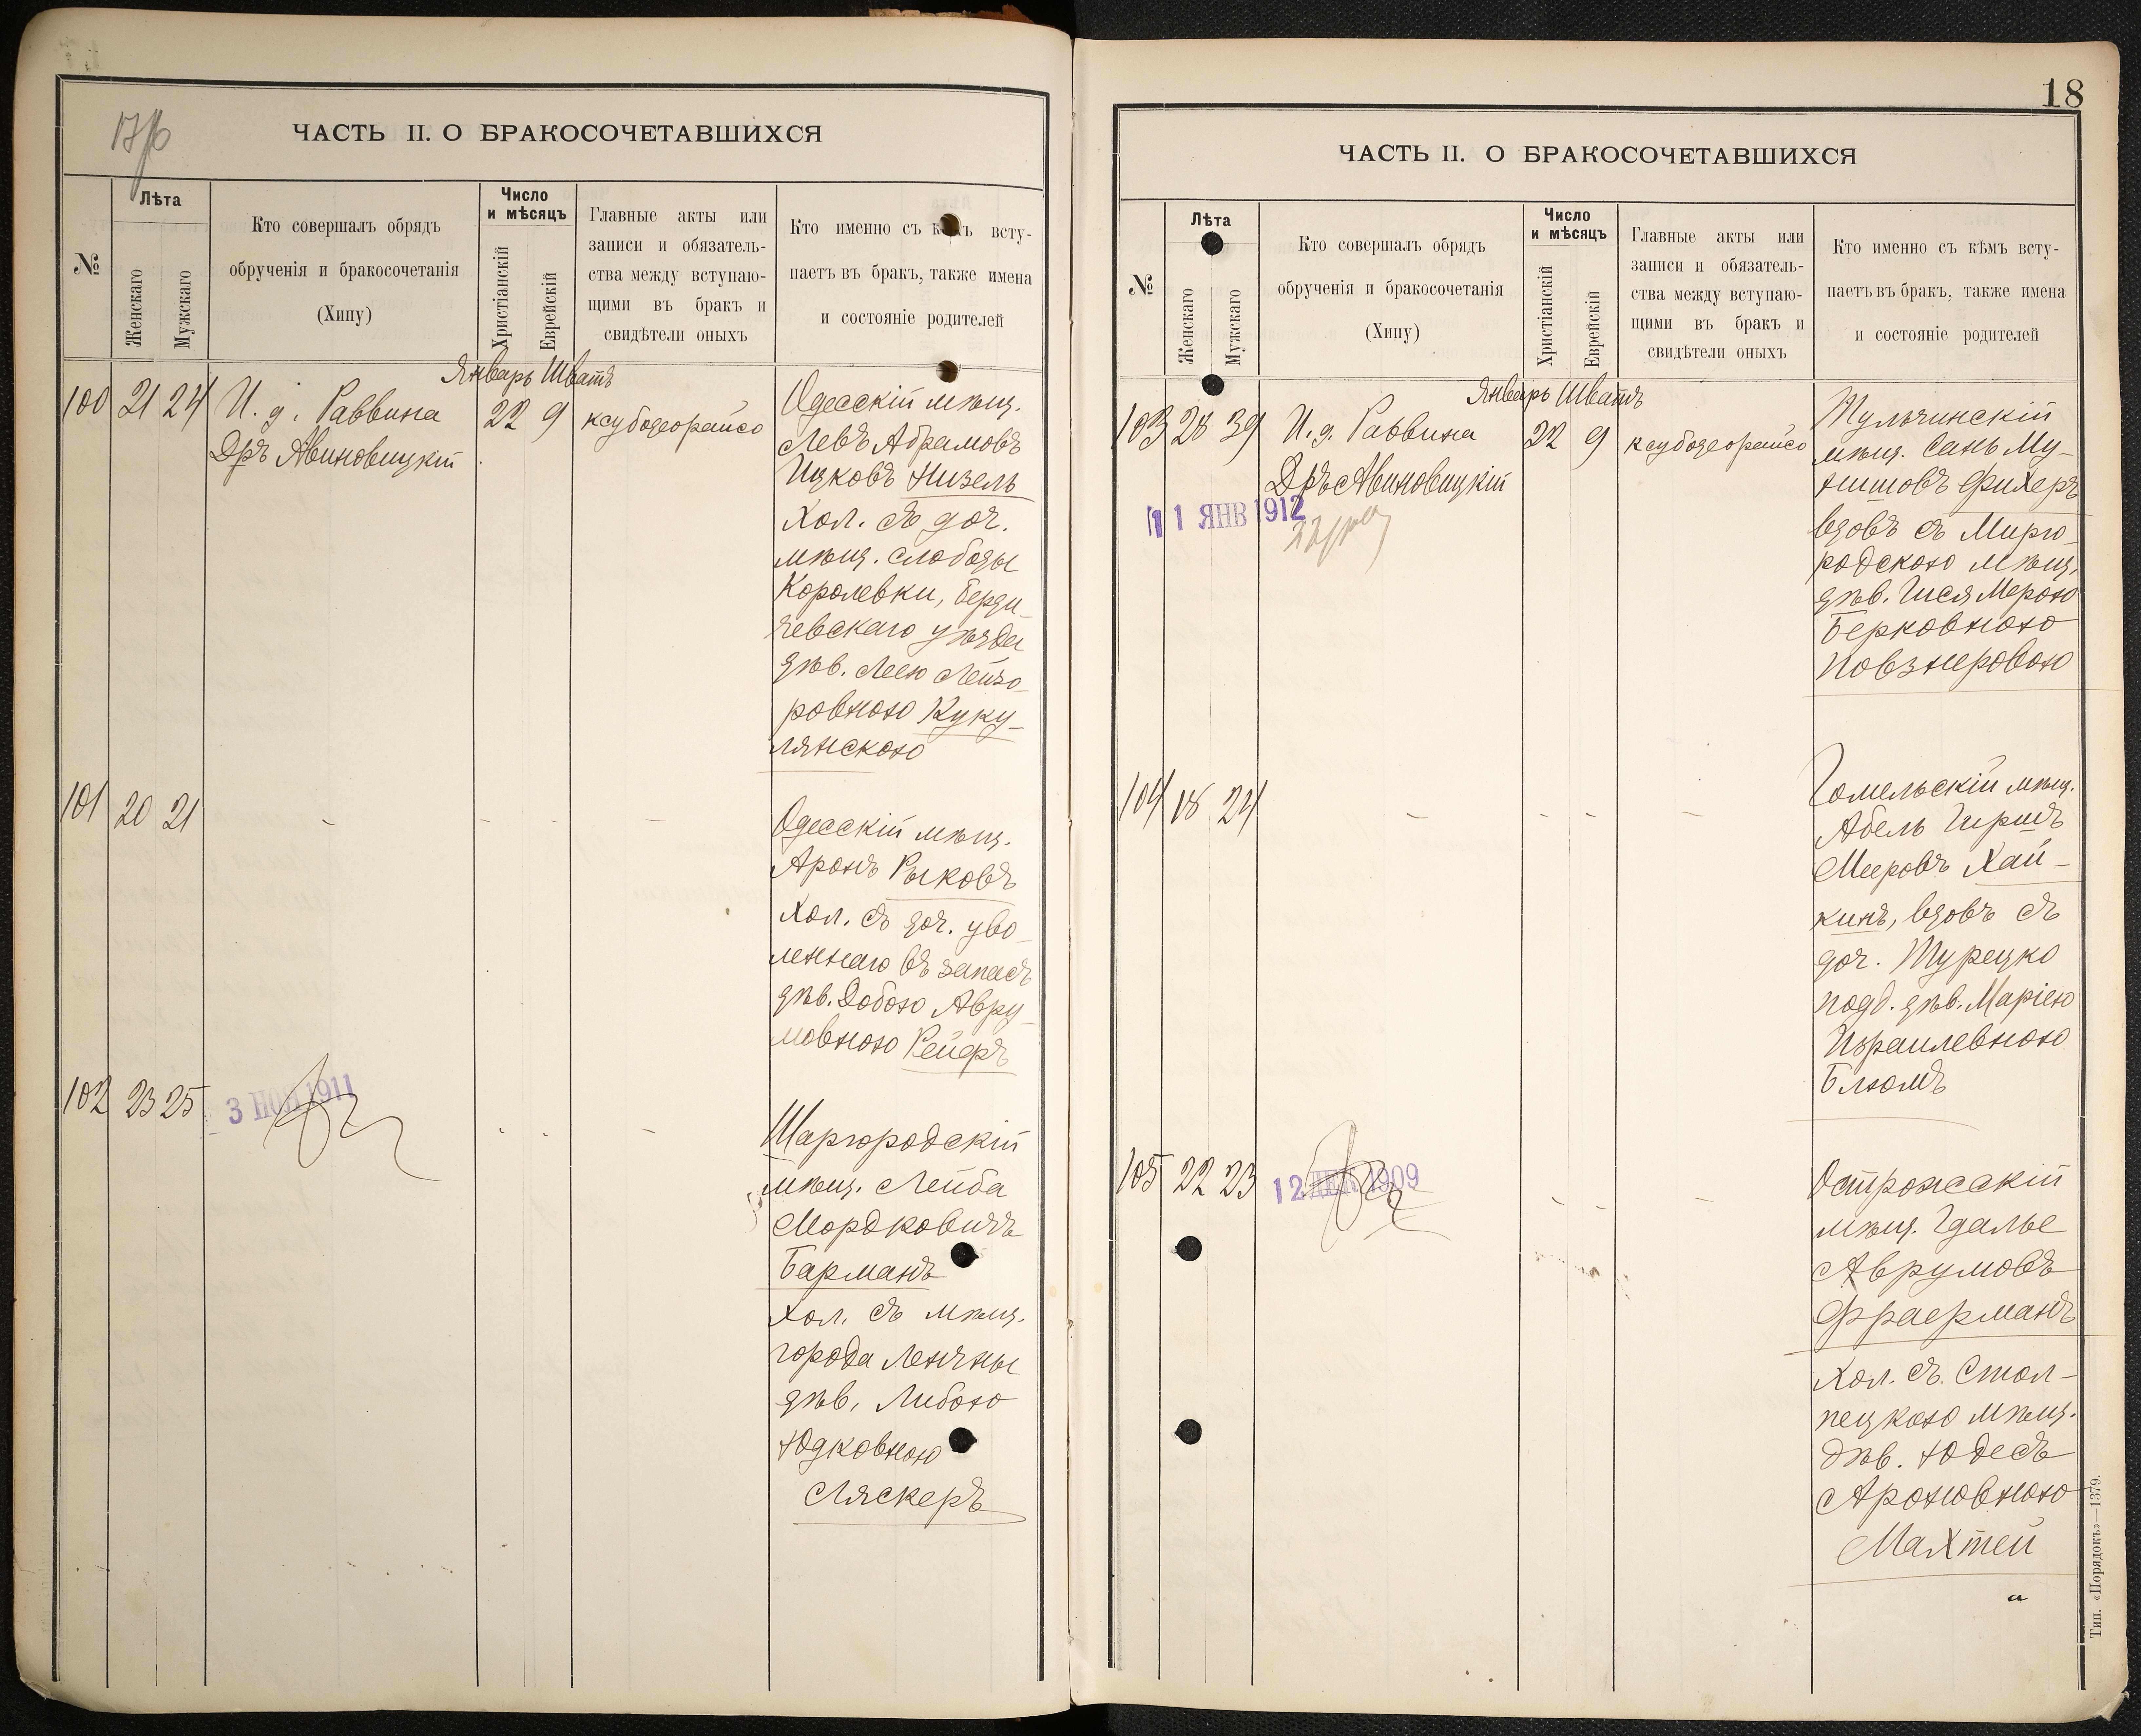 ЧАСТЬ II. О БРАКОСОЧЕТАВШИХСЯ
№
Лѣта
Женскаго
Мужскаго
Кто совершалъ обрядъ
обрученія и бракосочетанія
(Хипу)
Число
и мѣсяцъ
Христіанскій
Еврейскій
Главные акты или
записи и обязатель-
ства между вступаю-
щими въ бракъ и
свидѣтели оныхъ
Кто именно съ кѣмъ всту-
паетъ въ бракъ, также имена
и состояніе родителей
Январь Шватъ
100 21 24 И. д. Раввина
Дръ Авиновицкій
22 9 ксубодеорайсо
Одесскій мѣщ.
Левъ Абрамовъ
Ицковъ Низель
хол. съ доч.
мѣщ. слободы
Королевки, Берди-
чевскаго уѣзда
дѣв. Леею Лейзо-
ровною Куку-
лянскою
101 20 21
Одесскій мѣщ.
Аронъ Рыковъ
хол. съ доч. уво-
леннаго въ запасъ
дѣв. Добою Авру-
мовною Рейфъ
102 23 25
3 НОЯ 1911
Шаргородскій
мѣщ. Лейба
Мордковичъ
Барманъ
хол. съ мѣщ.
города
дѣв. Либою
Юдковною
Ляскеръ
18
ЧАСТЬ II. О БРАКОСОЧЕТАВШИХСЯ
№
Лѣта
Женскаго
Мужскаго
Кто совершалъ обрядъ
обрученія и бракосочетанія
(Хипу)
Число
и мѣсяцъ
Христіанскій
Еврейскій
Главные акты или
записи и обязатель-
ства между вступаю-
щими въ бракъ и
свидѣтели оныхъ
Кто именно съ кѣмъ всту-
паетъ въ бракъ, также имена
и состояніе родителей
Январь Шватъ
103 28 39 И. д. Раввина
Дръ Авиновицкій
22 9 ксубодеорайсо
11 ЯНВ 1912
Тульчинскій
мѣщ. Сань Му-
нишовъ Фихеръ
вдовъ съ Мирго-
родскою мѣщ.
дѣв. Гися Мерою
Берковною
Повзнеровою
104 18 24
Гомельскій мѣщ.
Абель Гиршъ
Мееровъ Хай-
кинъ, вдовъ съ
доч. Турецко
подд. дѣв. Маріею
Израилевною
Блюмъ
105 22 23
12 ДЕК 1909
Острожскій
мѣщ. Гдалье
Аврумовъ
Фраерманъ
хол. съ Стол-
пецкою мѣщ.
дѣв. Юдесъ
Ароновною
Махтей
Тип. «Порядокъ»—1379.